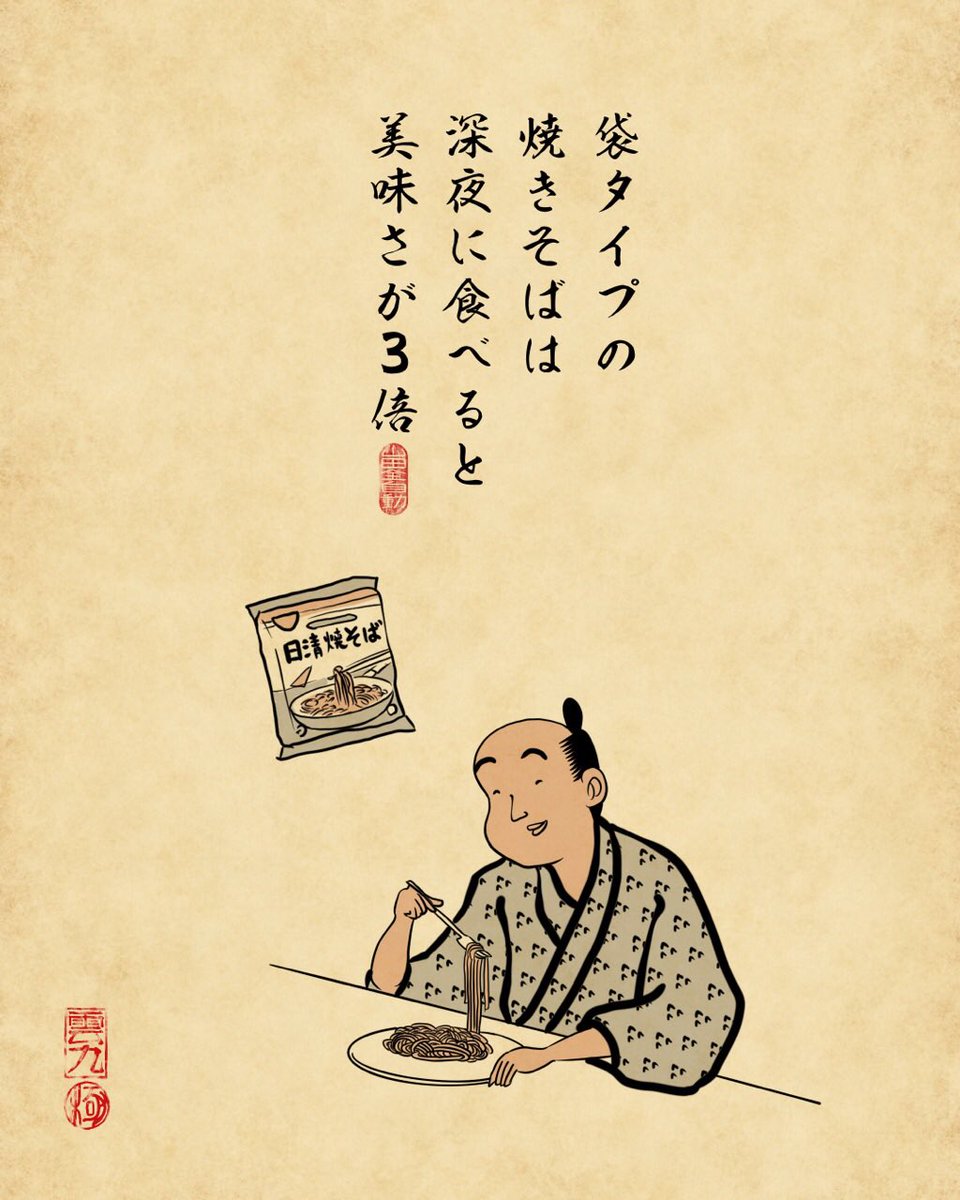 袋タイプの
焼きそばは
深夜に食べると
美味さが3倍
日清焼そば